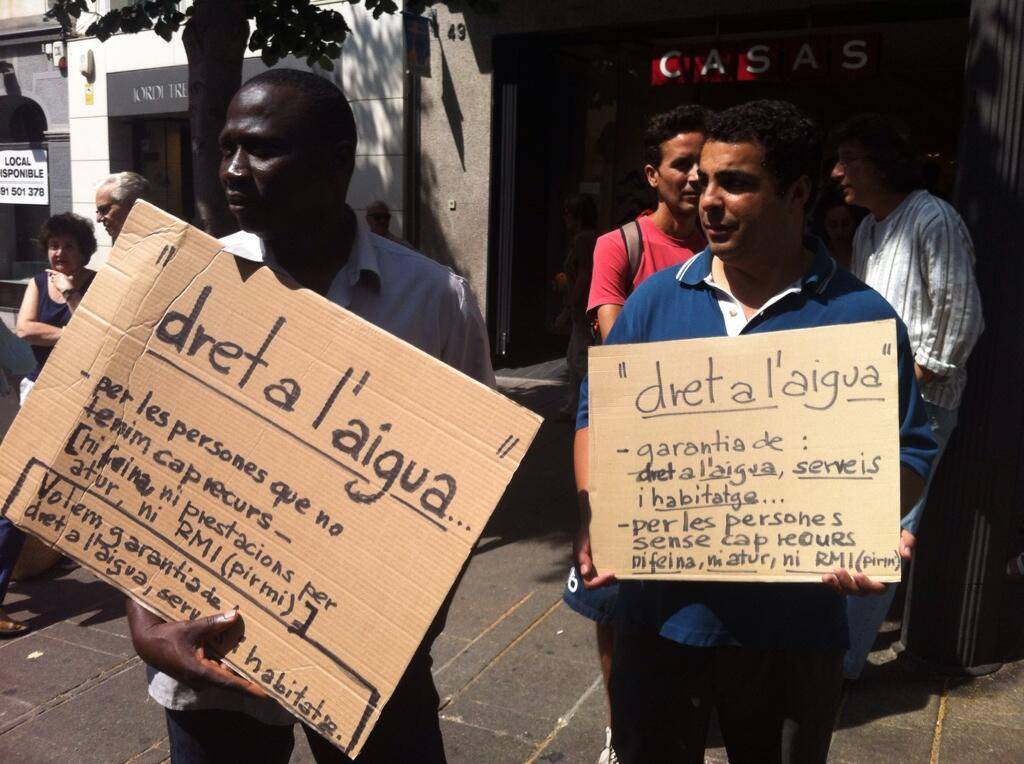 49
CASAS
JORDI TRE
LOCAL
ISPONIBLE
91 501 378
"dret a l'aigua..."
- per les persones que no
tenim cap recurs -
[ni feina, ni prestacions per
atur, ni RMI (pirmi)]
Volem garantia de
dret a l'aigua, serveis habitatge.
"dret a l'aigua"
- garantia de :
dret a l'aigua, serveis
i habitatge...
- per les persones
sense cap recurs
ni feina, ni atur, ni RMI (pirmi)